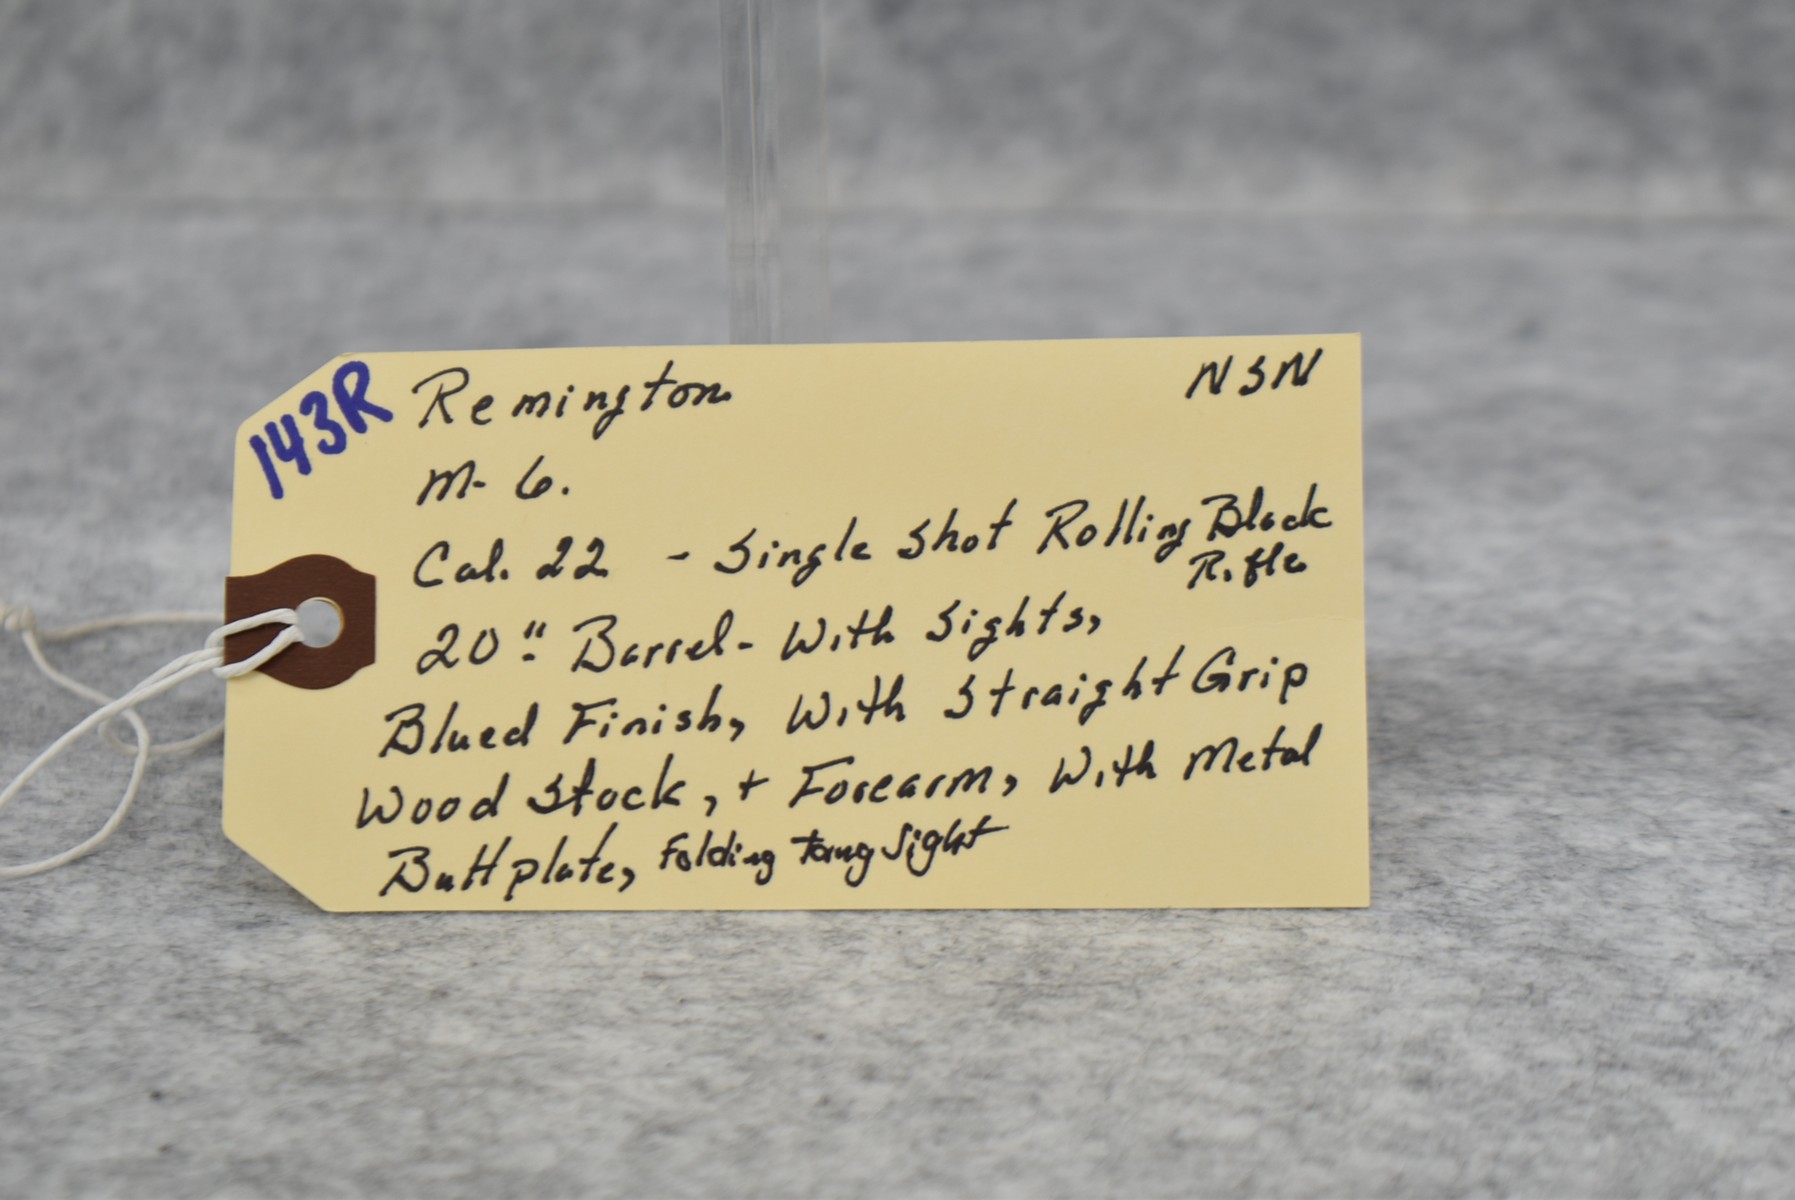 143R Remington NSN
M- 6.
Cal. 22 - Single Shot Rolling Block
Rifle
20" Barrel- With Sights,
Blued Finish, With Straight Grip
Wood Stock, + Forearm, With Metal
Buttplate, Folding Tang Sight